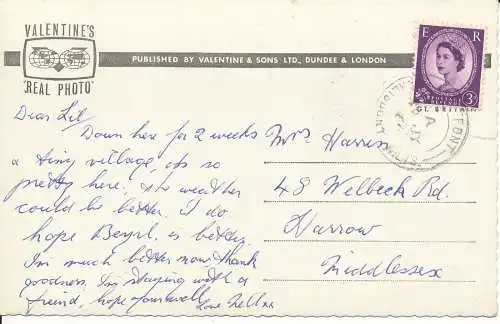 VALENTINE'S
"REAL PHOTO"
PUBLISHED BY VALENTINE & SONS LTD., DUNDEE & LONDON
E R
POSTAGE
REVENUE
3D
Dear Lil
Down here for 2 weeks
a tiny village, its so
pretty here, the weather
could be better. I do
hope Beryl. is better,
I'm much better now thank
goodness. I'm staying with a
friend, hope your well
Love Nell xx
Mrs Harriss
48 Welbeck Rd.
Harrow
Middlessex